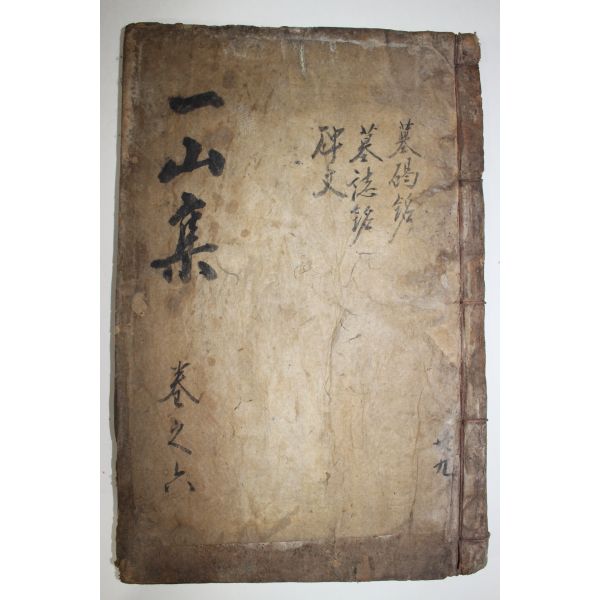 墓碣銘
墓誌銘
碑文
一山集
卷之六
共九